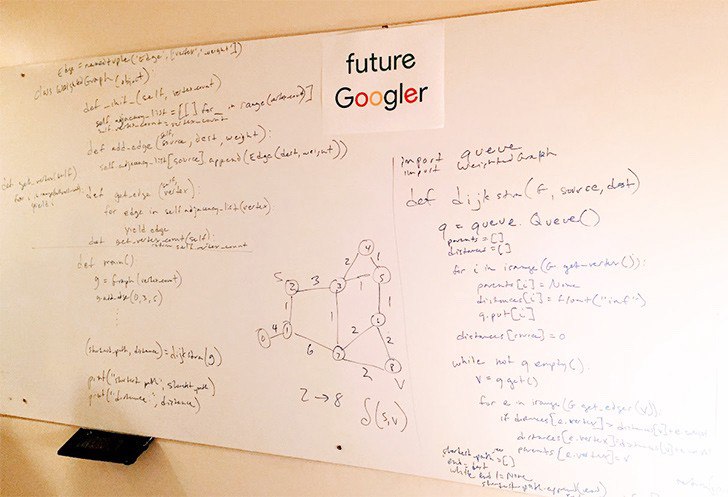 Edge = namedtuple('Edge', ['vertex', 'weight'])
class WeightedGraph(object):
def _init_(self, vertex_count)
self.adjacency_list = [[] for _ in range(vertex_count)]
self.vertex_count = vertex_count
def add_edge(self, source, dest, weight):
self.adjacency_list[source].append(Edge(dest, weight))
def get_vertex(self)
def get_edge(self, vertex)
for edge in self.adjacency_list(vertex)
yield edge
def get_vertex_count(self):
return self.vertex_count
def main():
g = Graph(vertex_count)
g.add_edge(0,3,5)
(shortest_path, distance) = dijkstra(g)
print("shortest path", shortest_path)
print("distance:", distance)
future
Googler
4
2
1
S
2
3
3
1
5
1
1
1
0
4
1
2
6
7
2
2
8
V
2 → 8
δ(s,v)
import queue
import WeightedGraph
def dijkstra(G, source, dest)
q = queue.Queue()
parents = []
distances = []
for i in range(G.get_vertex()):
parents[i] = None
distances[i] = float("inf")
q.put[i]
distances[source] = 0
while not q.empty():
v = q.get()
for e in range(G.get_edges(v)):
if distances[e.vertex] >
distances[e.vertex]
parents[e.vertex] = v
shortest_path = []
end = dest
while end != None
shortest_path.append(end)